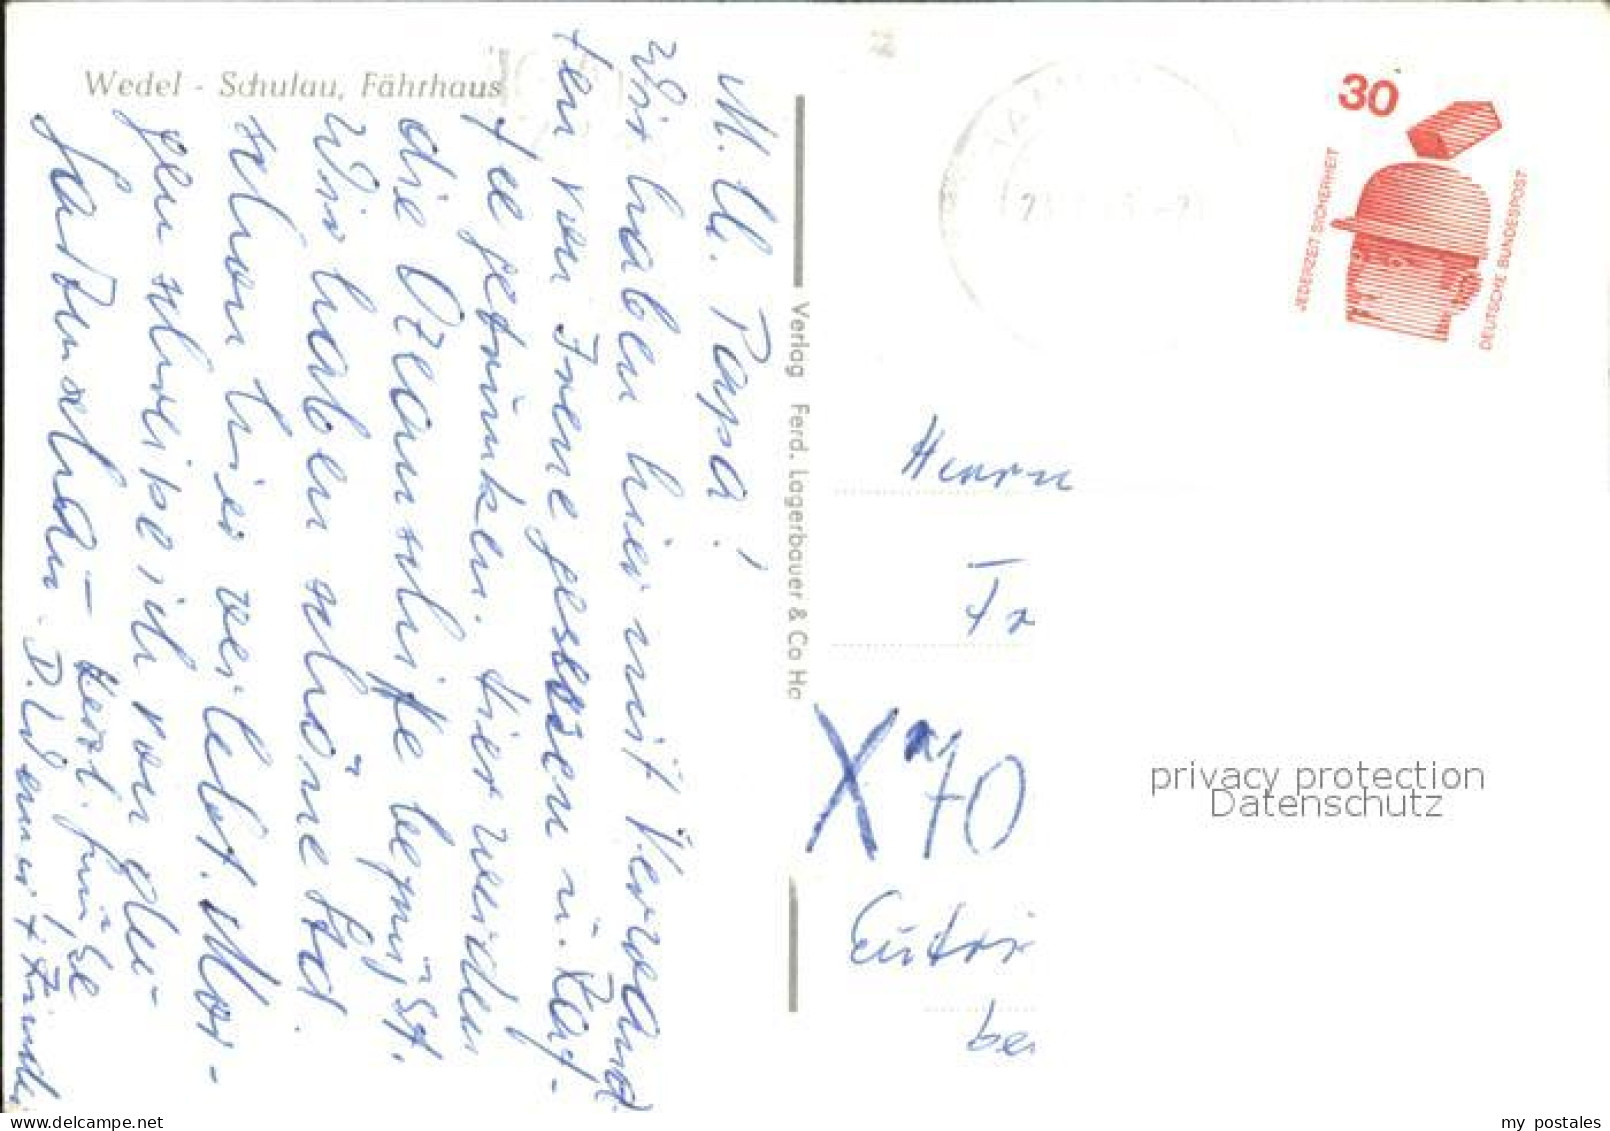 Wedel - Schulau, Fährhaus
M. lb. Papa!
Wir haben hier mit Verwand-
ten von Irene gesessen u. Kaf-
fee getrunken. Hier werden
die Ozeanschiffe begrüßt.
Wir haben schöne Std.
schon hier verlebt. Mor-
gen schreibe ich von
Herzl. Grüße
Verlag Ferd. Lagerbauer & Co Ha
30
JEDERZEIT SICHERHEIT
DEUTSCHE BUNDESPOST
Herrn
Fr
X 70
Eutri
be
privacy protection
Datenschutz
www.delcampe.net
my_postales